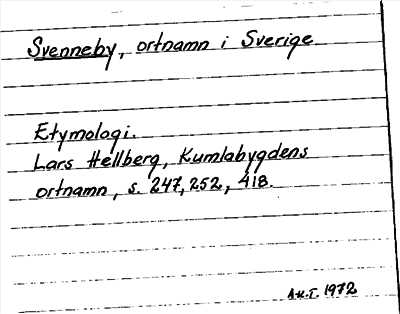 Svenneby, ortnamn i Sverige
Etymologi.
Lars Hellberg, Kumlabygdens
ortnamn, s. 247, 252, 418.
1972